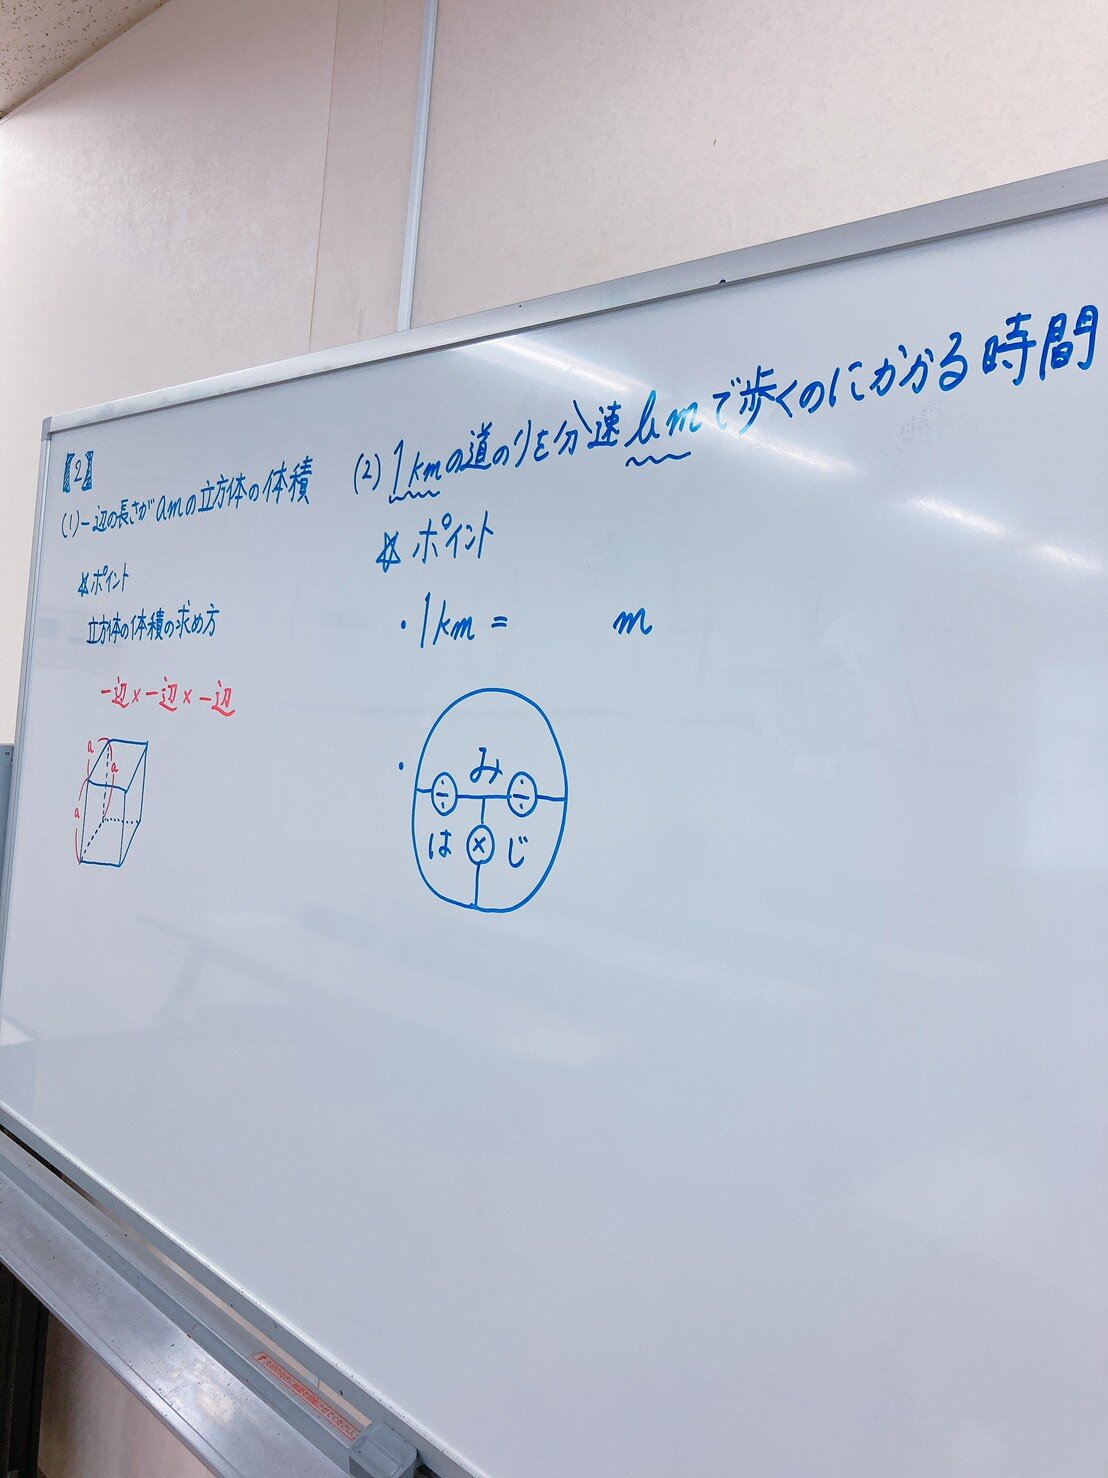 【2】
(1)一辺の長さがamの立方体の体積
☆ポイント
立方体の体積の求め方
一辺×一辺×一辺
a
a
a
(2)1kmの道のりを分速hmで歩くのにかかる時間
☆ポイント
・1km = m
・
み
÷ ÷
は × じ